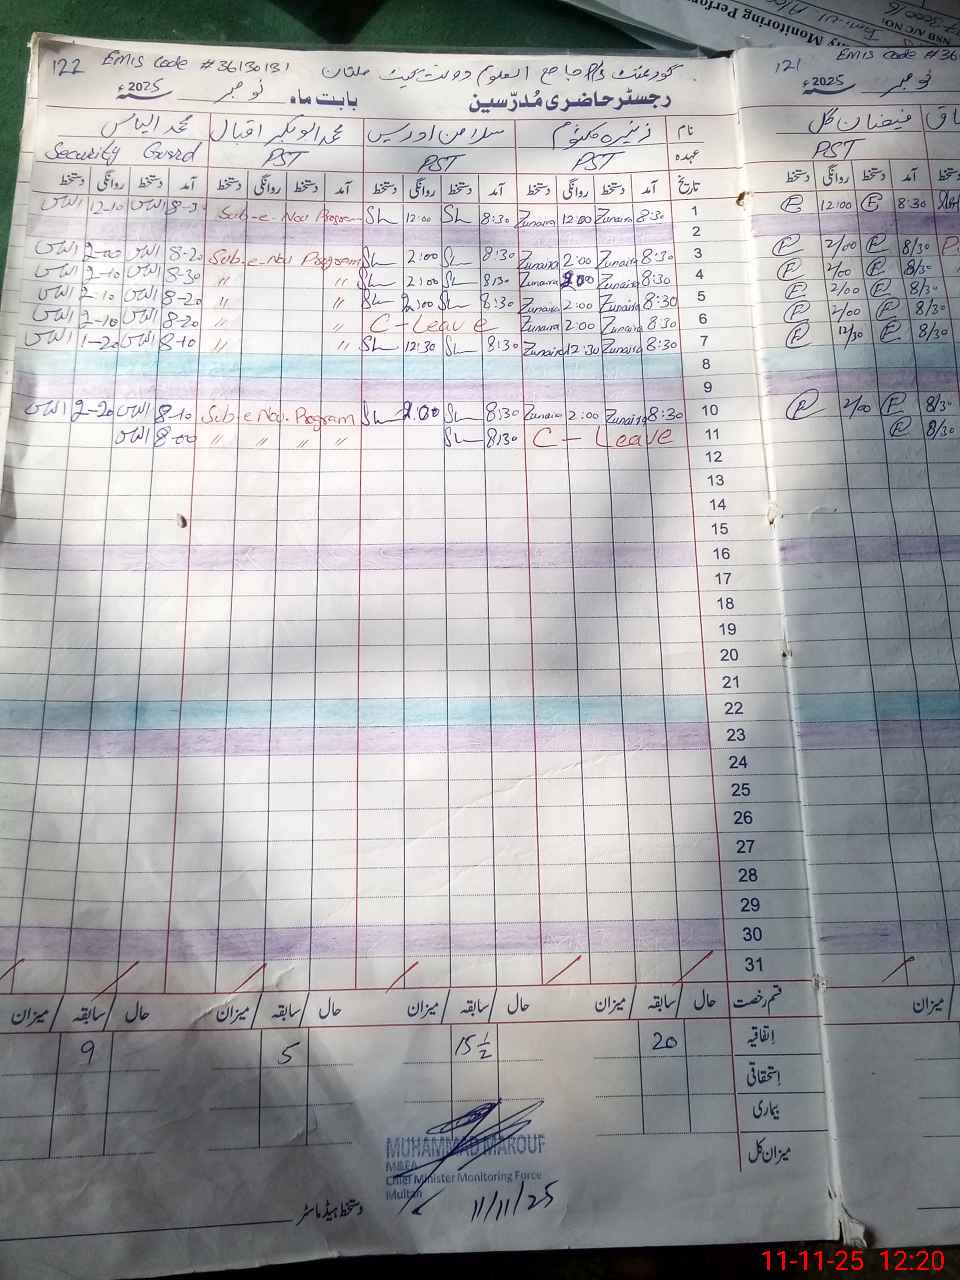 122 EMIS Code #36130131 گورنمنٹ P/S جامع العلوم دولت گیٹ ملتان
رجسٹر حاضری مُدرّسین بابت ماہ نومبر سنہ 2025ء
نام زنیرہ کلثوم سلامن اوریس محمد ابوبکر اقبال محمد الیاس
عہدہ PST PST PST Security Guard
تاریخ آمد دستخط روانگی دستخط آمد دستخط روانگی دستخط آمد دستخط روانگی دستخط آمد دستخط روانگی دستخط
1 8:30 Zunaira 12:00 Zunaira 8:30 SL 12:00 SL Sub-e-Nou Program الیاس 12-10 الیاس
2
3 8:30 Zunaira 2:00 Zunaira 8:30 SL 2:00 SL Sub-e-Nou Program 8-20 الیاس 2-00 الیاس
4 8:30 Zunaira 2:00 Zunaira 8:30 SL 2:00 SL 〃 〃 8-30 الیاس 2-10 الیاس
5 8:30 Zunaira 2:00 Zunaira 8:30 SL 2:00 SL 〃 〃 8-20 الیاس 2-10 الیاس
6 8:30 Zunaira 2:00 Zunaira C-Leave 〃 〃 8-20 الیاس 2-10 الیاس
7 8:30 Zunaira 12:30 Zunaira 8:30 SL 12:30 SL 〃 〃 8-10 الیاس 1-20 الیاس
8
9
10 8:30 Zunaira 2:00 Zunaira 8:30 SL 2:00 SL Sub-e Nou. Program 8-10 الیاس 2-20 الیاس
11 C-Leave 8:30 SL 〃 〃 〃 〃 8-00 الیاس
12
13
14
15
16
17
18
19
20
21
22
23
24
25
26
27
28
29
30
31
قسم رخصت حال / سابقہ / میزان حال / سابقہ / میزان حال / سابقہ / میزان حال / سابقہ / میزان
اتفاقیہ 20 15 1/2 5 9
استحقاقی
بیماری
میزان کل
MUHAMMAD MAROUF
M&EA
Chief Minister Monitoring Force
Multan
11/11/25
دستخط ہیڈ ماسٹر
121 EMIS Code #361
نومبر سنہ 2025ء
فیضان گل
PST
آمد دستخط روانگی دستخط
8:30 12:00
8/30 2/00
8/30 2/00
8/30 2/00
8/30 2/00
8/30 12/30
8/30 2/00
8/30
میزان
ry Monitoring Perfor
NSB A/C NO:
11-11-25 12:20